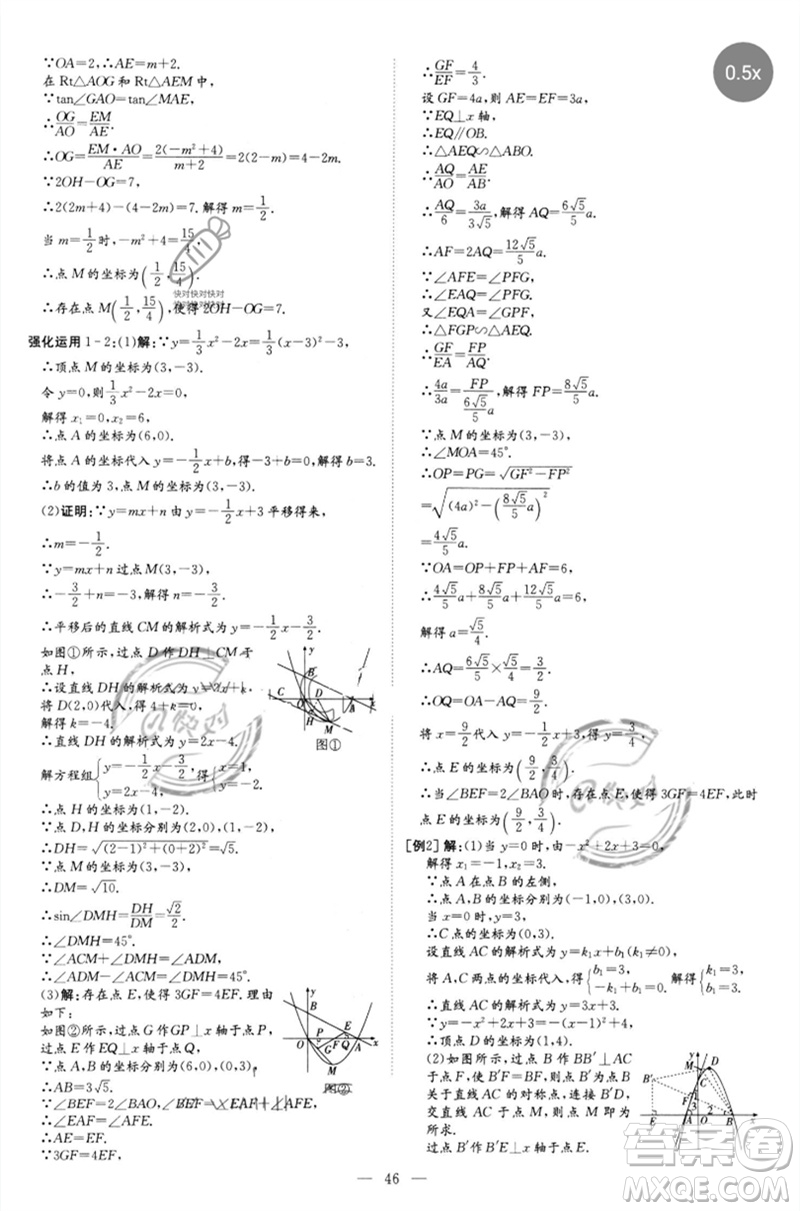 ∵OA=2,∴AE=m+2.
在 Rt△AOG 和 Rt△AEM 中,
∵tan∠GAO=tan∠MAE,
∴OG/AO=EM/AE.
∴OG=EM·AO/AE=2(-m²+4)/(m+2)=2(2-m)=4-2m.
∵2OH-OG=7,
∴2(2m+4)-(4-2m)=7.解得 m=1/2.
当 m=1/2时,-m²+4=15/4,
∴点 M 的坐标为(1/2,15/4).
∴存在点 M(1/2,15/4),使得 2OH-OG=7.
快对快对快对
快对快对快对
强化运用 1-2:(1)解:∵y=1/3x²-2x=1/3(x-3)²-3,
∴顶点 M 的坐标为(3,-3).
令 y=0,则1/3x²-2x=0,
解得 x₁=0,x₂=6,
∴点 A 的坐标为(6,0).
将点 A 的坐标代入 y=-1/2x+b,得-3+b=0,解得 b=3.
∴b 的值为 3,点 M 的坐标为(3,-3).
(2)证明:∵y=mx+n 由 y=-1/2x+3 平移得来,
∴m=-1/2.
∵y=mx+n 过点 M(3,-3),
∴-3/2+n=-3.解得 n=-3/2.
∴平移后的直线 CM 的解析式为 y=-1/2x-3/2.
如图①所示,过点 D 作 DH⊥CM 于
点 H,
∴设直线 DH 的解析式为 y=2x+k,
将 D(2,0)代入,得 4+k=0,
解得 k=-4.
∴直线 DH 的解析式为 y=2x-4.
y
B
C
O
D
A
x
H
M
图①
解方程组{y=-1/2x-3/2, y=2x-4, 得{x=1, y=-2.
∴点 H 的坐标为(1,-2).
∵点 D,H 的坐标分别为(2,0),(1,-2),
∴DH=√((2-1)²+(0+2)²)=√5.
∴DM=√10.
∴sin∠DMH=DH/DM=√2/2.
∴∠DMH=45°.
∵∠ACM+∠DMH=∠ADM,
∴∠ADM-∠ACM=45°.
(3)解:存在点 E,使得 3GF=4EF. 理由
如下:
如图②所示,过点 G 作 GP⊥x 轴于点 P,
过点 E 作 EQ⊥x 轴于点 Q,
∵点 A,B 的坐标分别为(6,0),(0,3),
∴AB=3√5.
∵∠BEF=2∠BAO,∠BEF=∠EAF+∠AFE,
∴∠EAF=∠AFE.
∴AE=EF.
∵3GF=4EF,
y
B
P
E
O
F
Q
A
x
G
M
图②
∴GF/EF=4/3.
设 GF=4a,则 AE=EF=3a,
∵EQ⊥x 轴,
∴EQ∥OB.
∴△AEQ∽△ABO.
∴AQ/AO=AE/AB.
∴AQ/6=3a/3√5,解得 AQ=6√5/5a.
∴AF=2AQ=12√5/5a.
∵∠AFE=∠PFG,
∴∠EAQ=∠PFG.
又∵∠EQA=∠GPF,
∴△FGP∽△AEQ.
∴GF/EA=FP/AQ.
∴4a/3a=FP/(6√5/5a),解得 FP=8√5/5a.
∵点 M 的坐标为(3,-3),
∴∠MOA=45°.
∴OP=PG=√(GF²-FP²)
=√((4a)²-(8√5/5a)²)
=4√5/5a.
∵OA=OP+FP+AF=6,
∴4√5/5a+8√5/5a+12√5/5a=6,
解得 a=√5/4.
∴AQ=6√5/5×√5/4=3/2.
∴OQ=OA-AQ=9/2.
将 x=9/2代入 y=-1/2x+3,得 y=3/4.
∴点 E 的坐标为(9/2,3/4).
∴当∠BEF=2∠BAO 时,存在点 E,使得 3GF=4EF,此时
点 E 的坐标为(9/2,3/4).
[例2]解:(1)当 y=0 时,由-x²+2x+3=0,
解得 x₁=-1,x₂=3.
∵点 A 在点 B 的左侧,
∴点 A,B 的坐标分别为(-1,0),(3,0).
当 x=0 时,y=3,
∴C 点的坐标为(0,3).
设直线 AC 的解析式为 y=k₁x+b₁(k₁≠0),
将 A,C 两点的坐标代入,得{b₁=3, -k₁+b₁=0.解得{k₁=3, b₁=3.
∴直线 AC 的解析式为 y=3x+3.
∵y=-x²+2x+3=-(x-1)²+4,
∴顶点 D 的坐标为(1,4).
(2)如图所示,过点 B 作 BB′⊥AC
于点 F,使 B′F=BF,则 B′为点 B
关于直线 AC 的对称点,连接 B′D,
交直线 AC 于点 M,则点 M 即为
所求.
过点 B′作 B′E⊥x 轴于点 E.
46
0.5x
快对
快对
答案卷